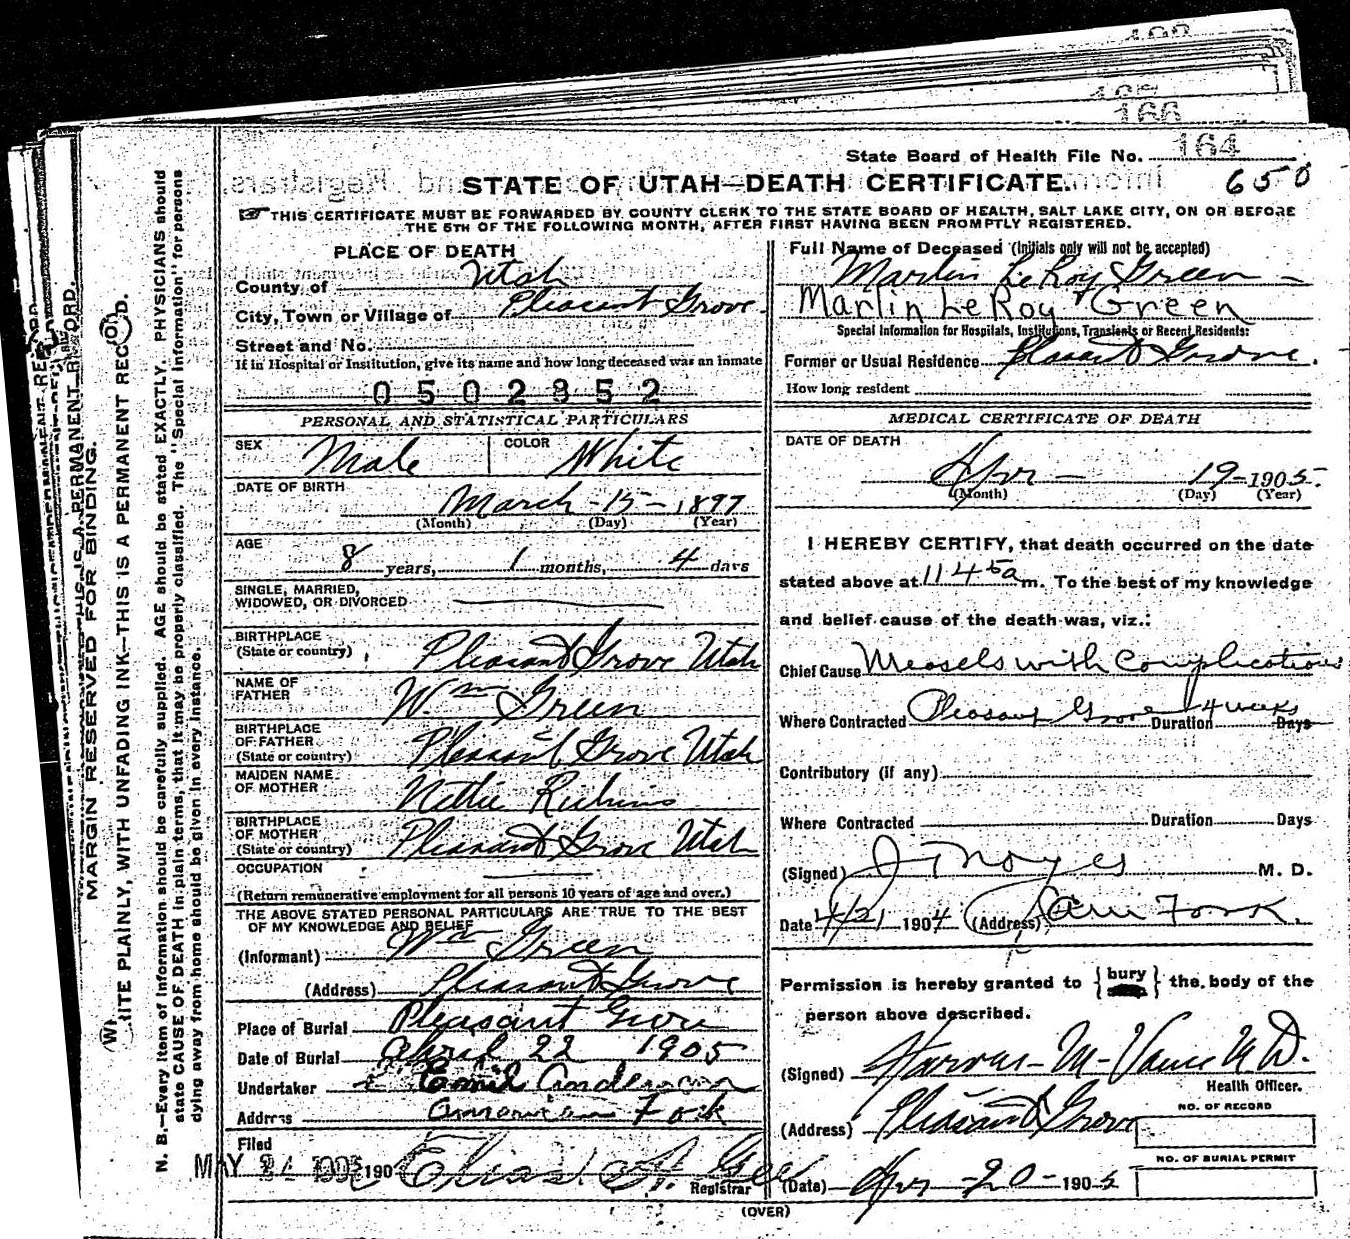 168
167
166
State Board of Health File No. 164
650
STATE OF UTAH—DEATH CERTIFICATE.
THIS CERTIFICATE MUST BE FORWARDED BY COUNTY CLERK TO THE STATE BOARD OF HEALTH, SALT LAKE CITY, ON OR BEFORE
THE 5TH OF THE FOLLOWING MONTH, AFTER FIRST HAVING BEEN PROMPTLY REGISTERED.
PLACE OF DEATH
County of Utah
City, Town or Village of Pleasant Grove
Street and No.
If in Hospital or Institution, give its name and how long deceased was an inmate
0502852
Full Name of Deceased (Initials only will not be accepted)
Marlin LeRoy Green
Marlin LeRoy Green
Special Information for Hospitals, Institutions, Transients or Recent Residents:
Former or Usual Residence Pleasant Grove.
How long resident
PERSONAL AND STATISTICAL PARTICULARS
SEX Male COLOR White
DATE OF BIRTH March - 15 - 1897
(Month) (Day) (Year)
AGE 8 years, 1 months, 4 days
SINGLE, MARRIED,
WIDOWED, OR DIVORCED
BIRTHPLACE
(State or country) Pleasant Grove Utah
NAME OF
FATHER Wm Green
BIRTHPLACE
OF FATHER
(State or country) Pleasant Grove Utah
MAIDEN NAME
OF MOTHER Nettie
BIRTHPLACE
OF MOTHER
(State or country) Pleasant Grove Utah
OCCUPATION
(Return remunerative employment for all persons 10 years of age and over.)
THE ABOVE STATED PERSONAL PARTICULARS ARE TRUE TO THE BEST
OF MY KNOWLEDGE AND BELIEF
(Informant) Wm Green
(Address) Pleasant Grove
Place of Burial Pleasant Grove
Date of Burial April 22 1905
Undertaker Emil Anderson
Address American Fork
Filed
MAY 24 1905 190 Elias A. Gee
Registrar
MEDICAL CERTIFICATE OF DEATH
DATE OF DEATH
Apr - 19 - 1905.
(Month) (Day) (Year)
I HEREBY CERTIFY, that death occurred on the date
stated above at 11 45 a m. To the best of my knowledge
and belief cause of the death was, viz.:
Chief Cause Measels with Complications
Where Contracted Pleasant Grove Duration 4 weeks Days
Contributory (if any)
Where Contracted Duration Days
(Signed) J Noyes M. D.
Date 4/21 1904 (Address) Am Fork.
Permission is hereby granted to {bury} the body of the
person above described.
(Signed) M. D.
Health Officer.
NO. OF RECORD
(Address) Pleasant Grove
NO. OF BURIAL PERMIT
(Date) Apr - 20 - 1905
(OVER)
MARGIN RESERVED FOR BINDING.
WRITE PLAINLY, WITH UNFADING INK—THIS IS A PERMANENT RECORD.
N. B.—Every item of information should be carefully supplied. AGE should be stated EXACTLY. PHYSICIANS should
state CAUSE OF DEATH in plain terms, that it may be properly classified. The "Special Information" for persons
dying away from home should be given in every instance.